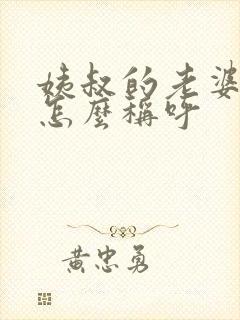 姨叔的老婆
怎麼稱呼
黃忠勇